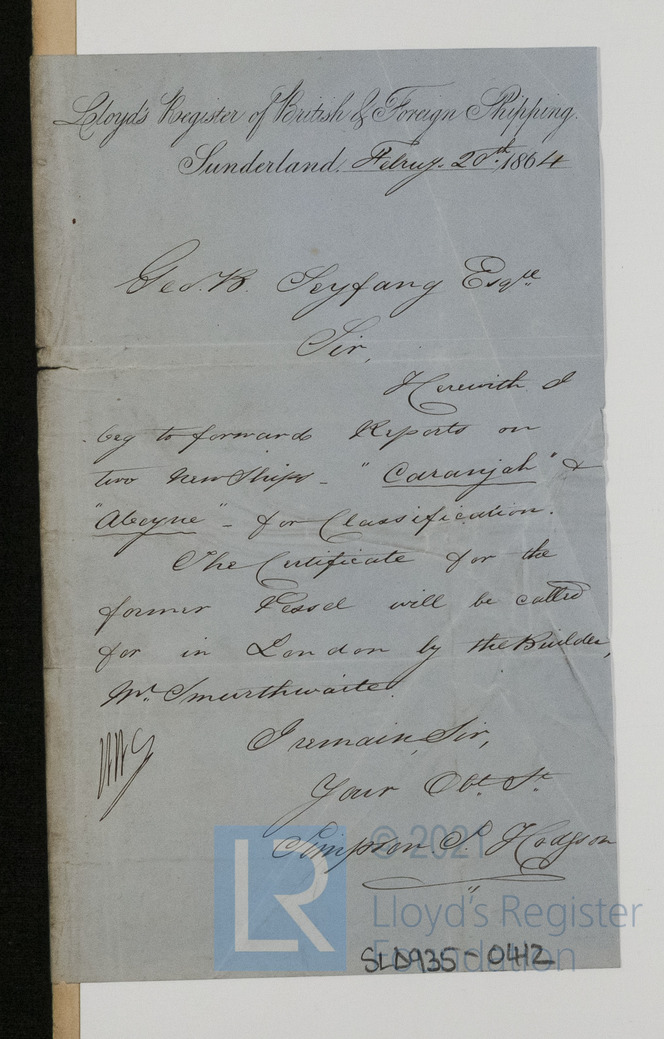 Lloyd's Register of British & Foreign Shipping.
Sunderland, Februy. 20th. 1864
Geo. B. Seyfang Esqre
Sir,
Herewith I
beg to forward Reports on
two New Ships - "Caranjah" &
"Aboyne" - for Classification.
The Certificate for the
former Vessel will be called
for in London by the Builder,
Mr. Smurthwaite.
I remain, Sir,
Your Obt. St.
Simpson S. Hodgson
© 2021
LR
Lloyd's Register
Foundation
SLD935-0412